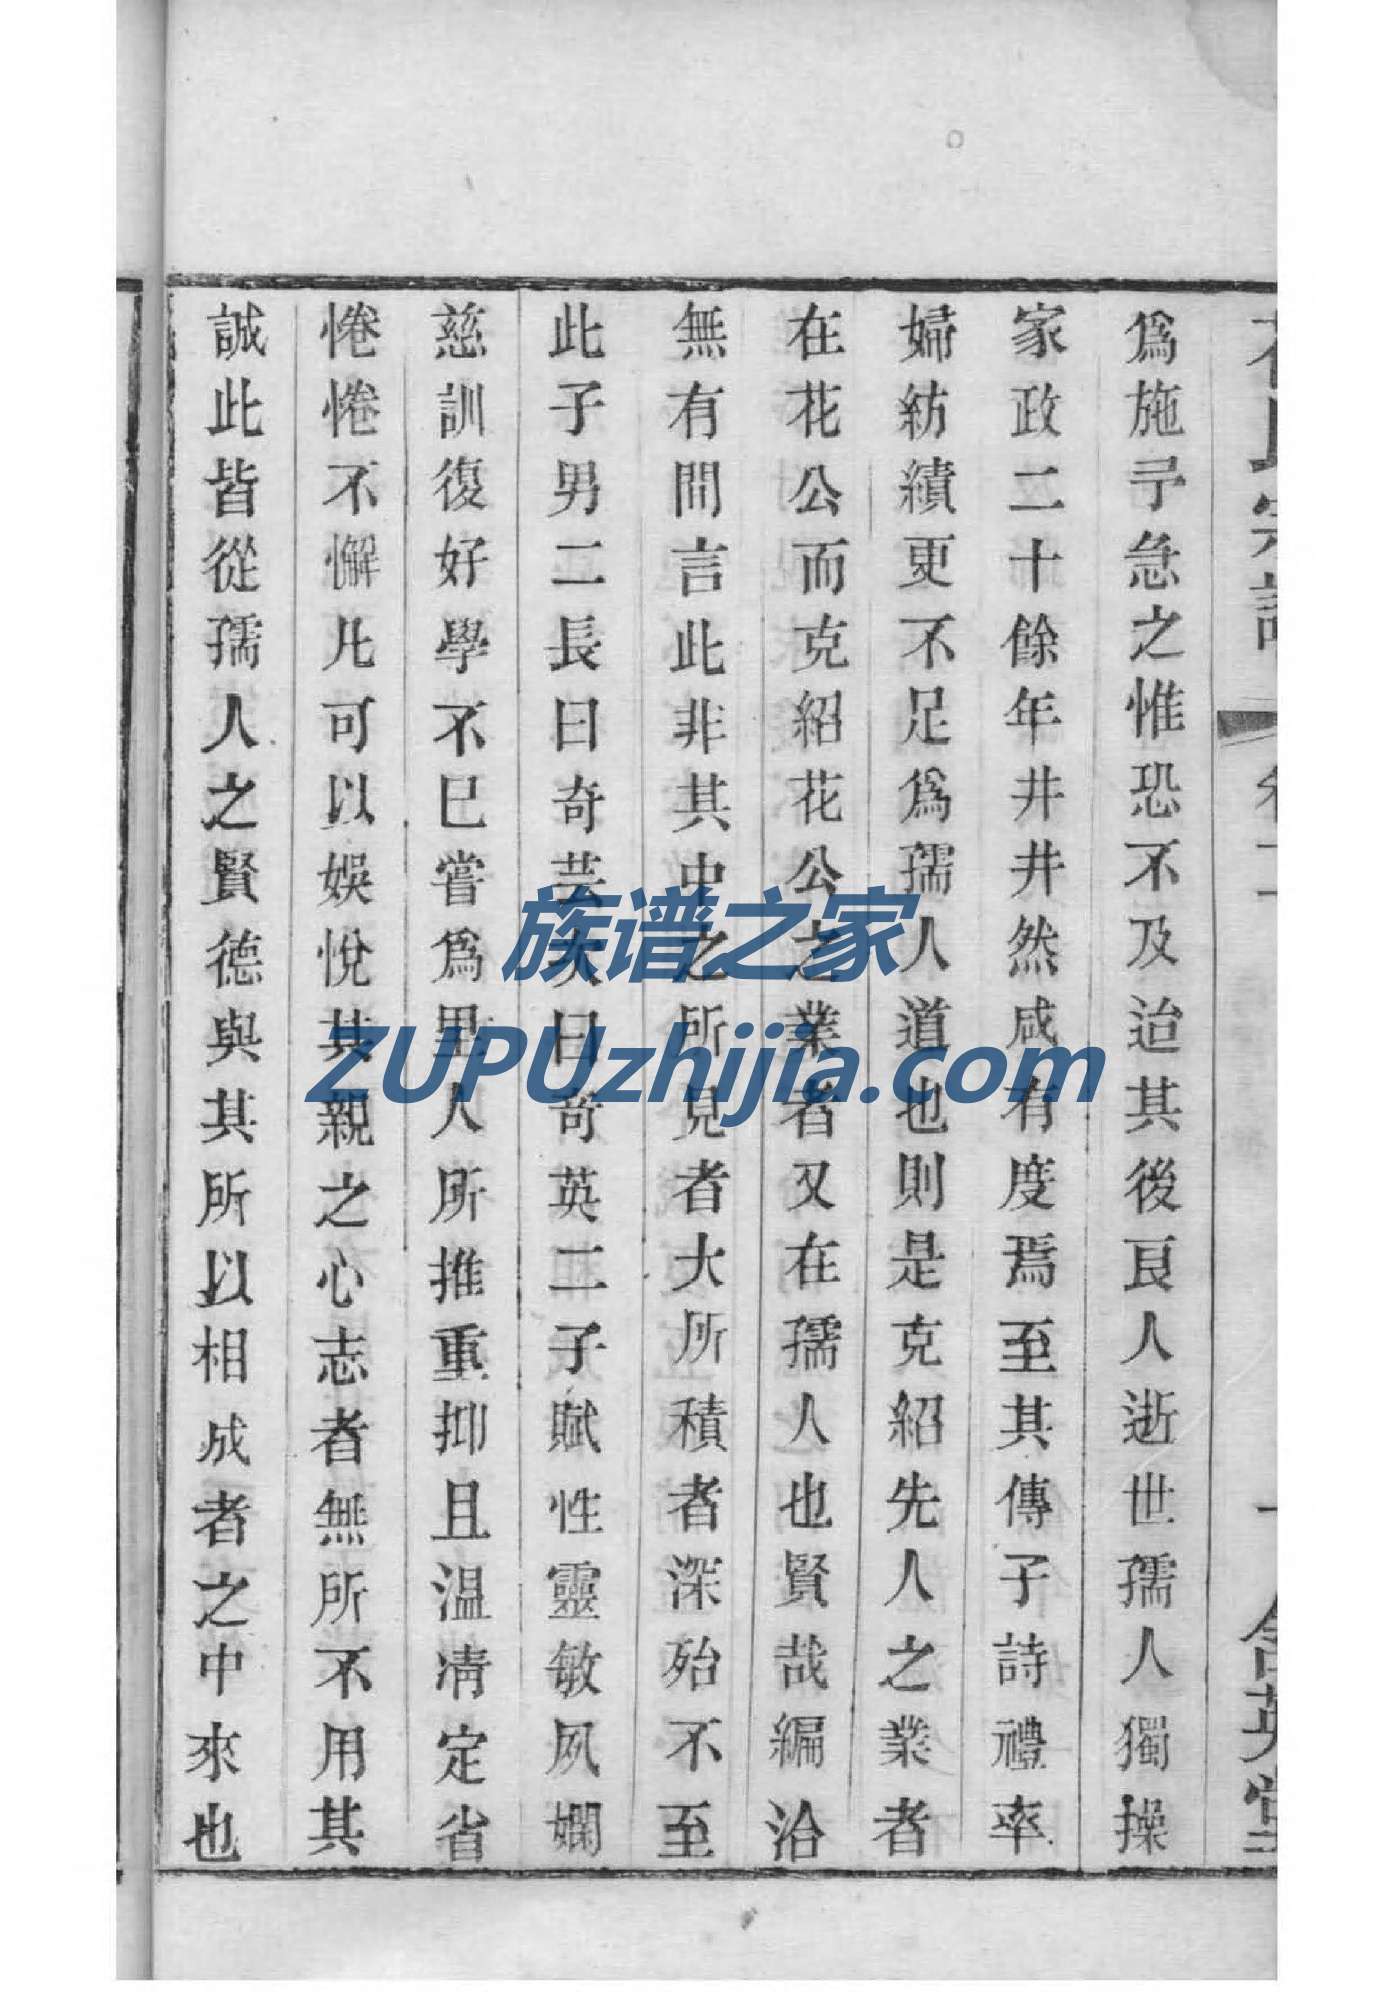 爲施予急之惟恐不及迨其後良人逝世孺人獨操
家政二十餘年井井然咸有度焉至其傳子詩禮率
婦紡績更不足爲孺人道也則是克紹先人之業者
在花公而克紹花公之業者又在孺人也賢哉編洽
無有間言此非其中之所見者大所積者深殆不至
此子男二長曰奇芸次曰奇英二子賦性靈敏夙嫻
慈訓復好學不已嘗爲里人所推重抑且温凊定省
惓惓不懈凡可以娛悅其親之心志者無所不用其
誠此皆從孺人之賢德與其所以相成者之中來也
族谱之家
ZUPUzhijia.com